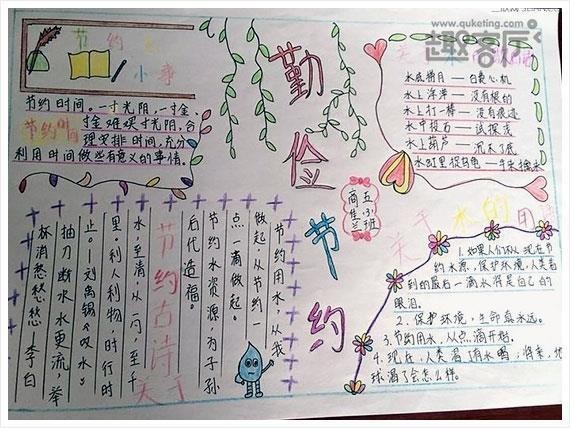 www.quketing.com
趣客厅
节约
小事
节约时间。一寸光阴,一寸金,
寸金难买寸光阴,合
节约时间
理安排时间,充分
利用时间做些有意义的事情。
勤俭节约
水底捞月——白费心机
水上浮萍——没有根的
水上打一棒——没有痕迹
水中投石——试
水上葫芦——沉不了底
水缸里捉乌龟——手来擒来
五(3)班
商佳兰
节约用水,从我
做起,从节约一
点一滴做起。
节约水资源,为子孙
后代造福。
节约古诗
关于
水,至清,从一勺,至千
里。利人利物,时行时
止。-刘禹锡《叹水》
抽刀断水水更流,举
杯消愁愁愁愁 李白
关于水的用
1.如果人们不从现在节
约水源,保护环境,人类看
到的最后一滴水将是自己的
眼泪。
2、保护环境,生命真永远。
3、节约用水,从点滴开始。
4、现在,人类渴了有水喝;将来,地
球渴了会怎么样。